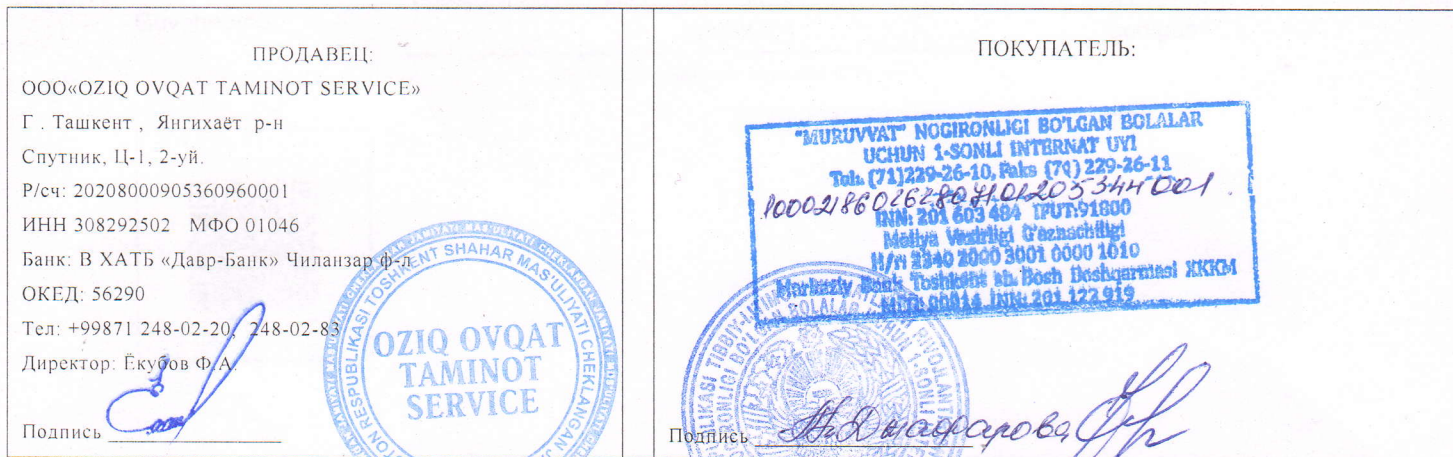 ПРОДАВЕЦ:
ООО«OZIQ OVQAT TAMINOT SERVICE»
Г . Ташкент , Янгихаёт р-н
Спутник, Ц-1, 2-уй.
Р/сч: 20208000905360960001
ИНН 308292502 МФО 01046
Банк: В ХАТБ «Давр-Банк» Чиланзар ф-л
ОКЕД: 56290
Тел: +99871 248-02-20, 248-02-83
Директор: Ёкубов Ф.А.
Подпись
TOSHKENT SHAHAR MAS'ULIYATI CHEKLANGAN
OZIQ OVQAT
TAMINOT
SERVICE
ПОКУПАТЕЛЬ:
"MURUVVAT" NOGIRONLIGI BO'LGAN BOLALAR
UCHUN 1-SONLI INTERNAT UYI
Tel. (71)229-26-10, Faks (71) 229-26-11
INN: 201 603 484 IFUT:91800
Moliya Vazirligi G'aznachiligi
H/r: 2340 2000 3001 0000 1010
Markaziy Bank Toshkent sh. Bosh Boshqarmasi XKKM
MFO: 00014 INN: 201 122 919
Подпись Джафарова